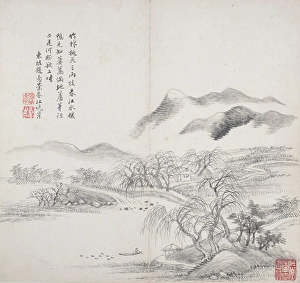 竹外桃花三兩枝春江水暖
鴨先知蔞蒿滿地蘆芽短
正是河豚欲上時
東坡題惠崇春江景